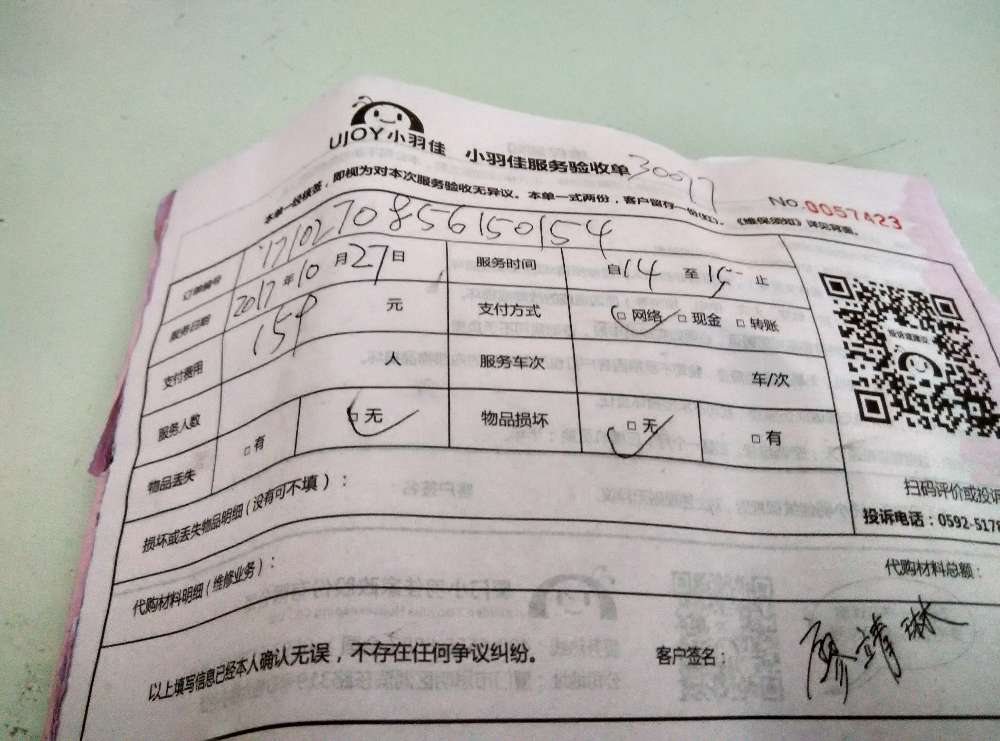 UJOY小羽佳 小羽佳服务验收单 30077
本单一经核签，即视为对本次服务验收无异议。本单一式两份，客户留存一份(红)。《维保须知》详见背面。
No.0057423
订单编号 1710270856150154
服务日期 2017年10月27日 服务时间 自14至15止
支付费用 159元 支付方式 □网络 □现金 □转账
服务人数 人 服务车次 车/次
物品丢失 □有 □无 物品损坏 □无 □有
扫码评价或投诉
损坏或丢失物品明细(没有可不填)：
投诉电话：0592-5178
代购材料明细(维修业务)：
代购材料总额：
以上填写信息已经本人确认无误，不存在任何争议纠纷。
客户签名： 廖靖琳